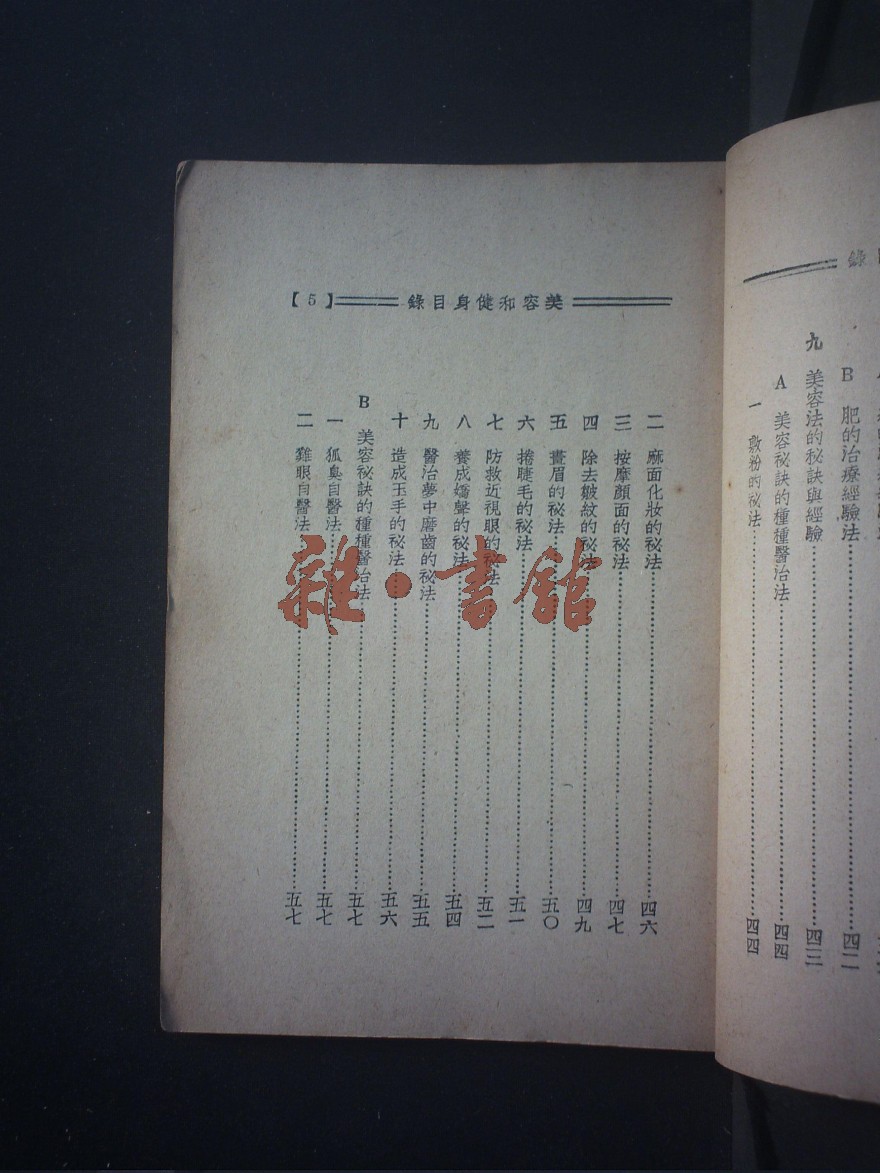 錄
B 肥的治療經驗法 四二
九 美容法的秘訣與經驗 四三
A 美容祕訣的種種醫治法 四四
一 敷粉的祕法 四四
美容和健身目錄 【5】
二 麻面化妝的秘法 四六
三 按摩顏面的秘法 四七
四 除去皺紋的秘法 四九
五 畫眉的祕法 五〇
六 捲睫毛的祕法 五一
七 防救近視眼的秘法 五二
八 養成嬌聲的秘法 五四
九 醫治夢中磨齒的祕法 五五
十 造成玉手的祕法 五六
B 美容祕訣的種種醫治法 五七
一 狐臭自醫法 五七
二 雞眼自醫法 五七
雜·書館